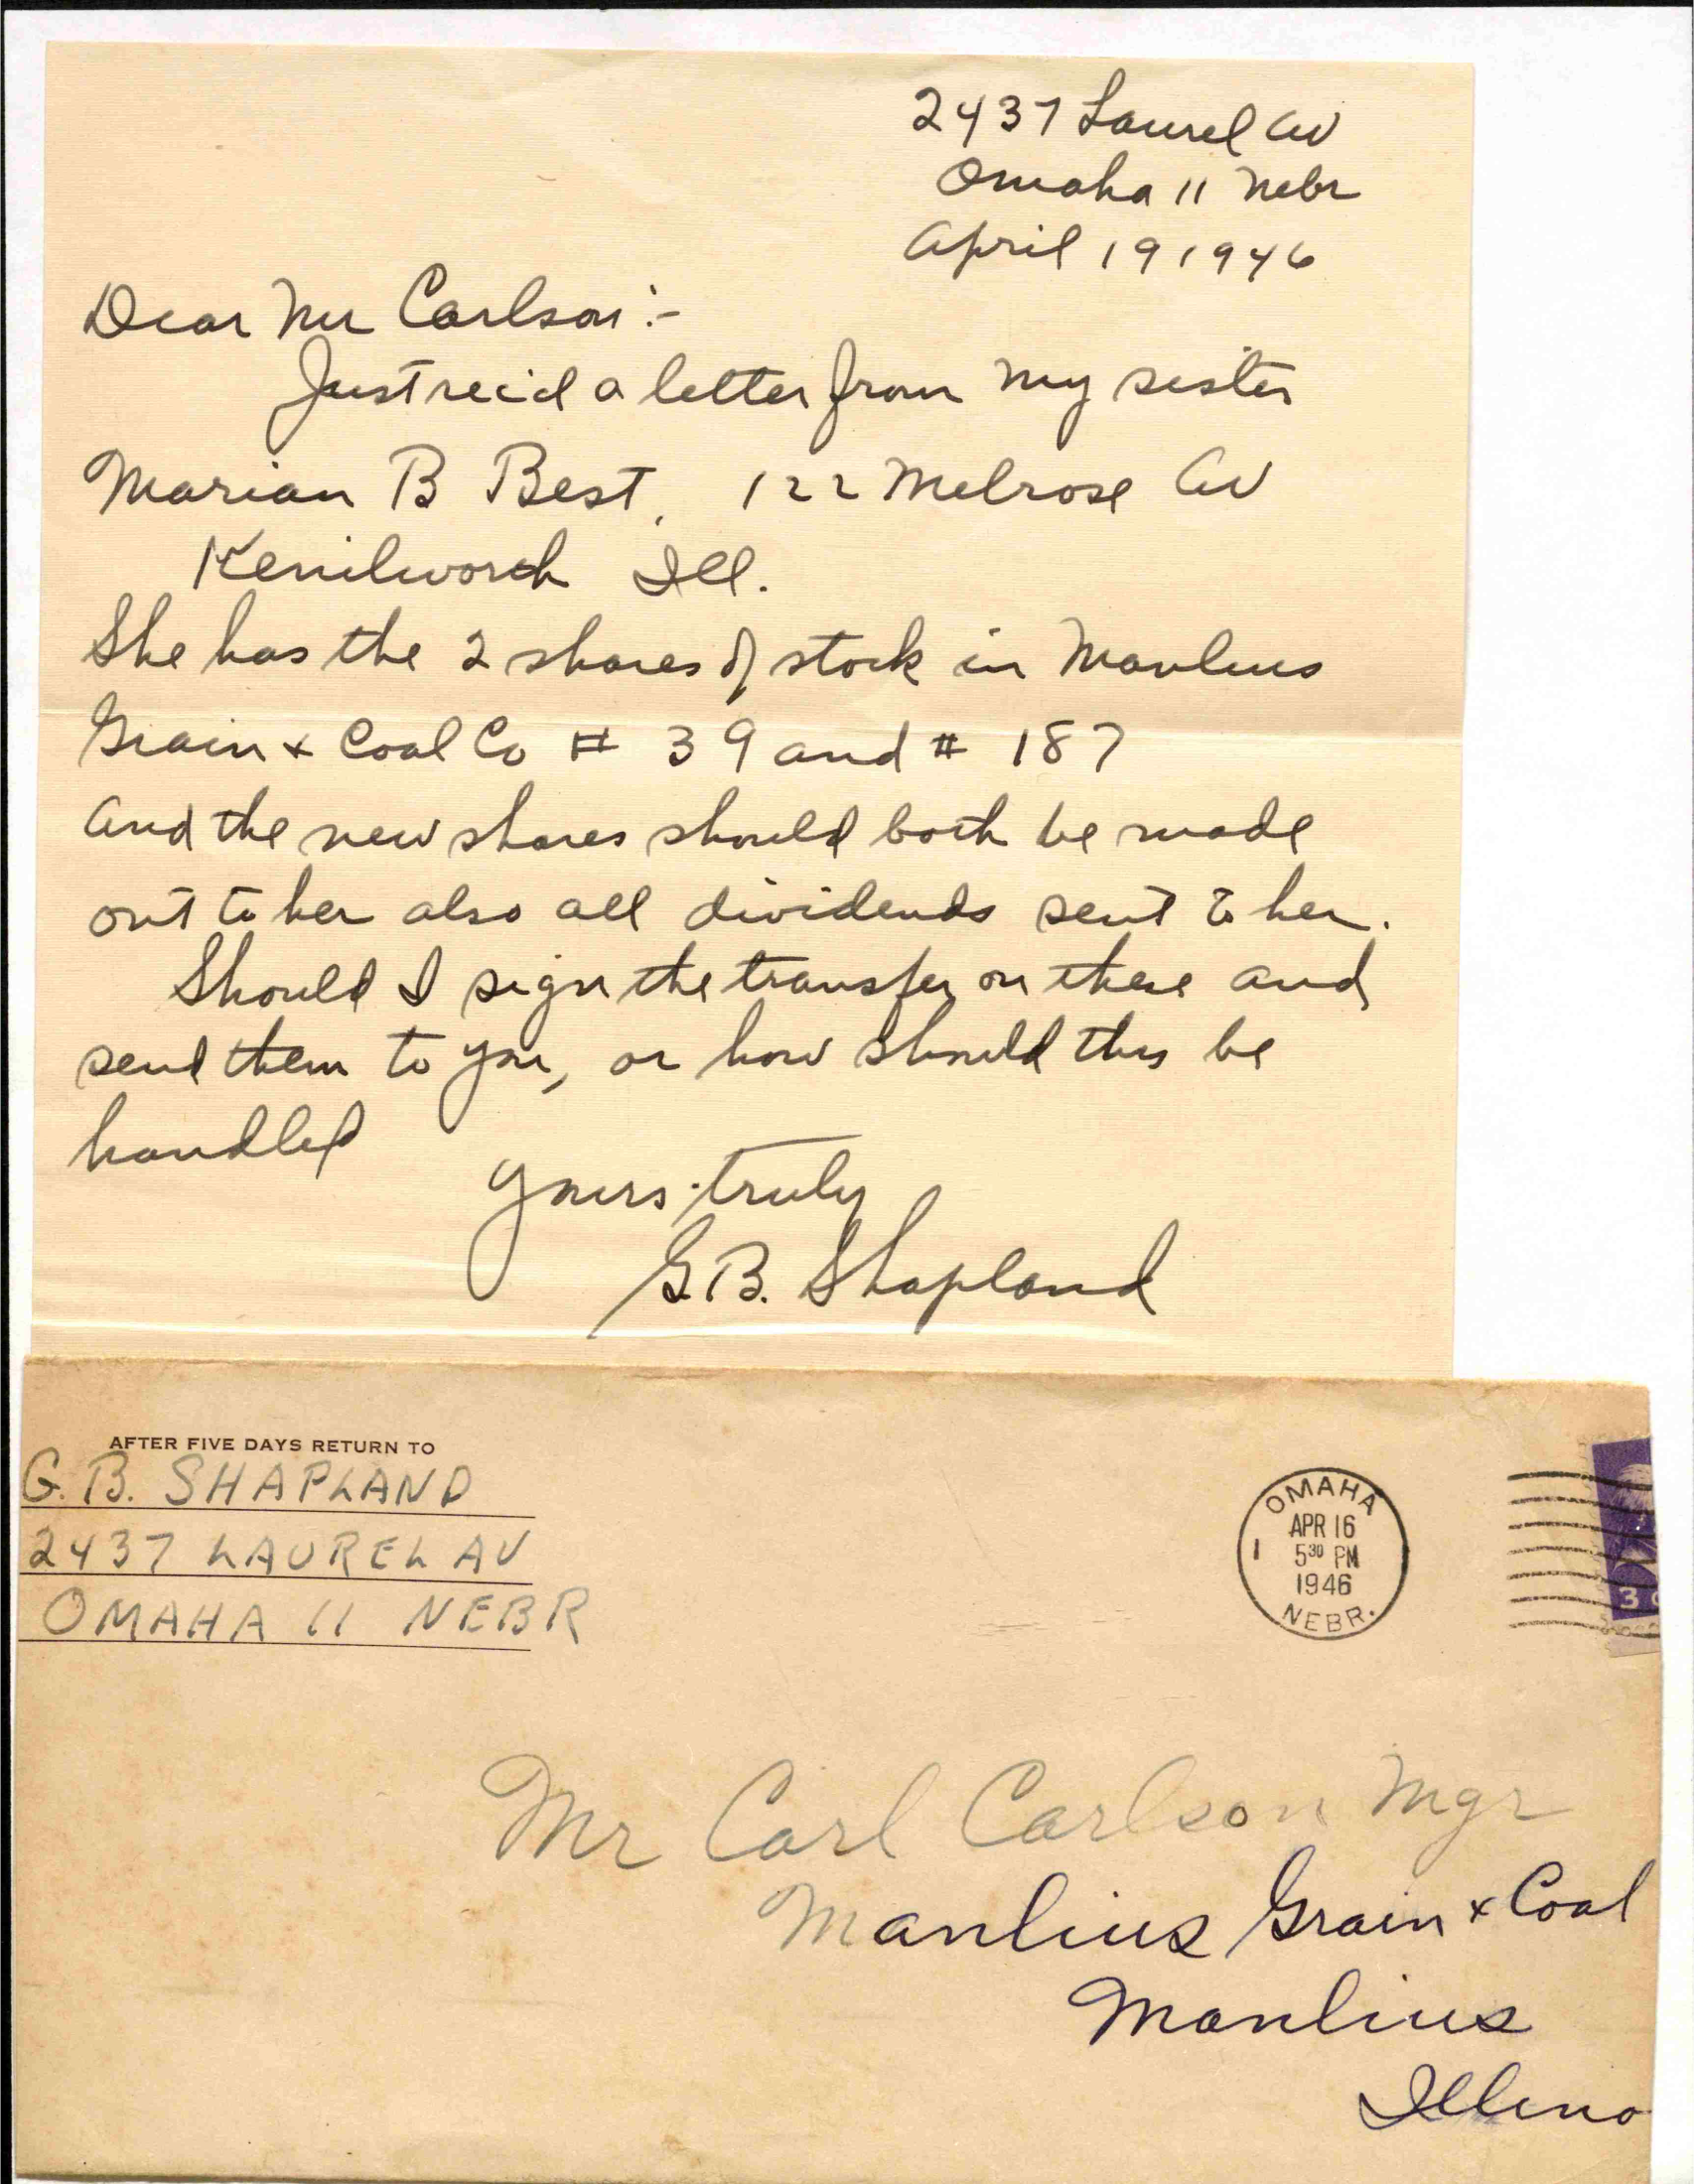 2437 Laurel Av
Omaha 11 Nebr
April 19 1946
Dear Mr Carlson :-
Just rec'd a letter from my sister
Marian B Best, 122 Melrose Av
Kenilworth Ill.
She has the 2 shares of stock in Manlius
Grain + Coal Co # 39 and # 187
and the new shares should both be made
out to her also all dividends sent to her.
Should I sign the transfer on these and
send them to you, or how should this be
handled
Yours truly
G.B. Shapland
AFTER FIVE DAYS RETURN TO
G. B. SHAPLAND
2437 LAUREL AV
OMAHA 11 NEBR
OMAHA
APR 16
1 5 30 PM
1946
NEBR.
3 c
Mr Carl Carlson Mgr
Manlius Grain + Coal
Manlius
Illino